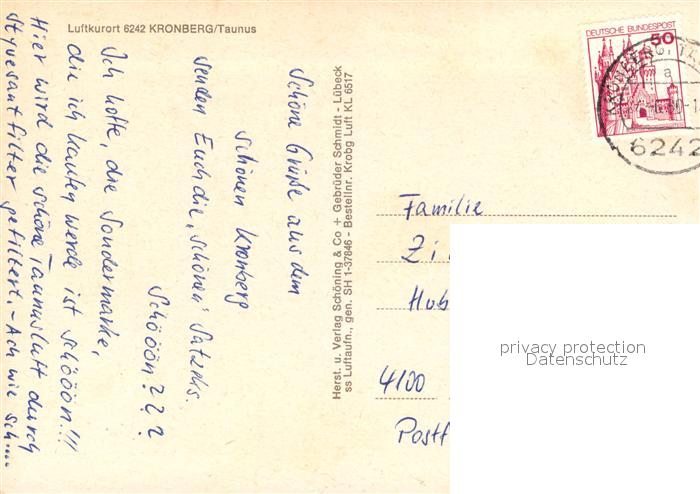 Luftkurort 6242 KRONBERG/Taunus
Schöne Grüße aus dem
schönen Kronberg
senden Euch die „schönen" Satzehs.
Schööön???
Ich hoffe, die Sondermarke,
die ich kaufen werde ist schööön!!!
Hier wird die schöne Taunusluft durch
Styvesantfilter gefiltert. - Ach wie sch....
Herst. u. Verlag Schöning & Co + Gebrüder Schmidt - Lübeck
ss Luftaufn., gen. SH 1-37846 - Bestellnr. Krobg Luft KL 6517
DEUTSCHE BUNDESPOST
50
a
6242
Familie
Zi
Hub
4100
Postf
privacy protection
Datenschutz